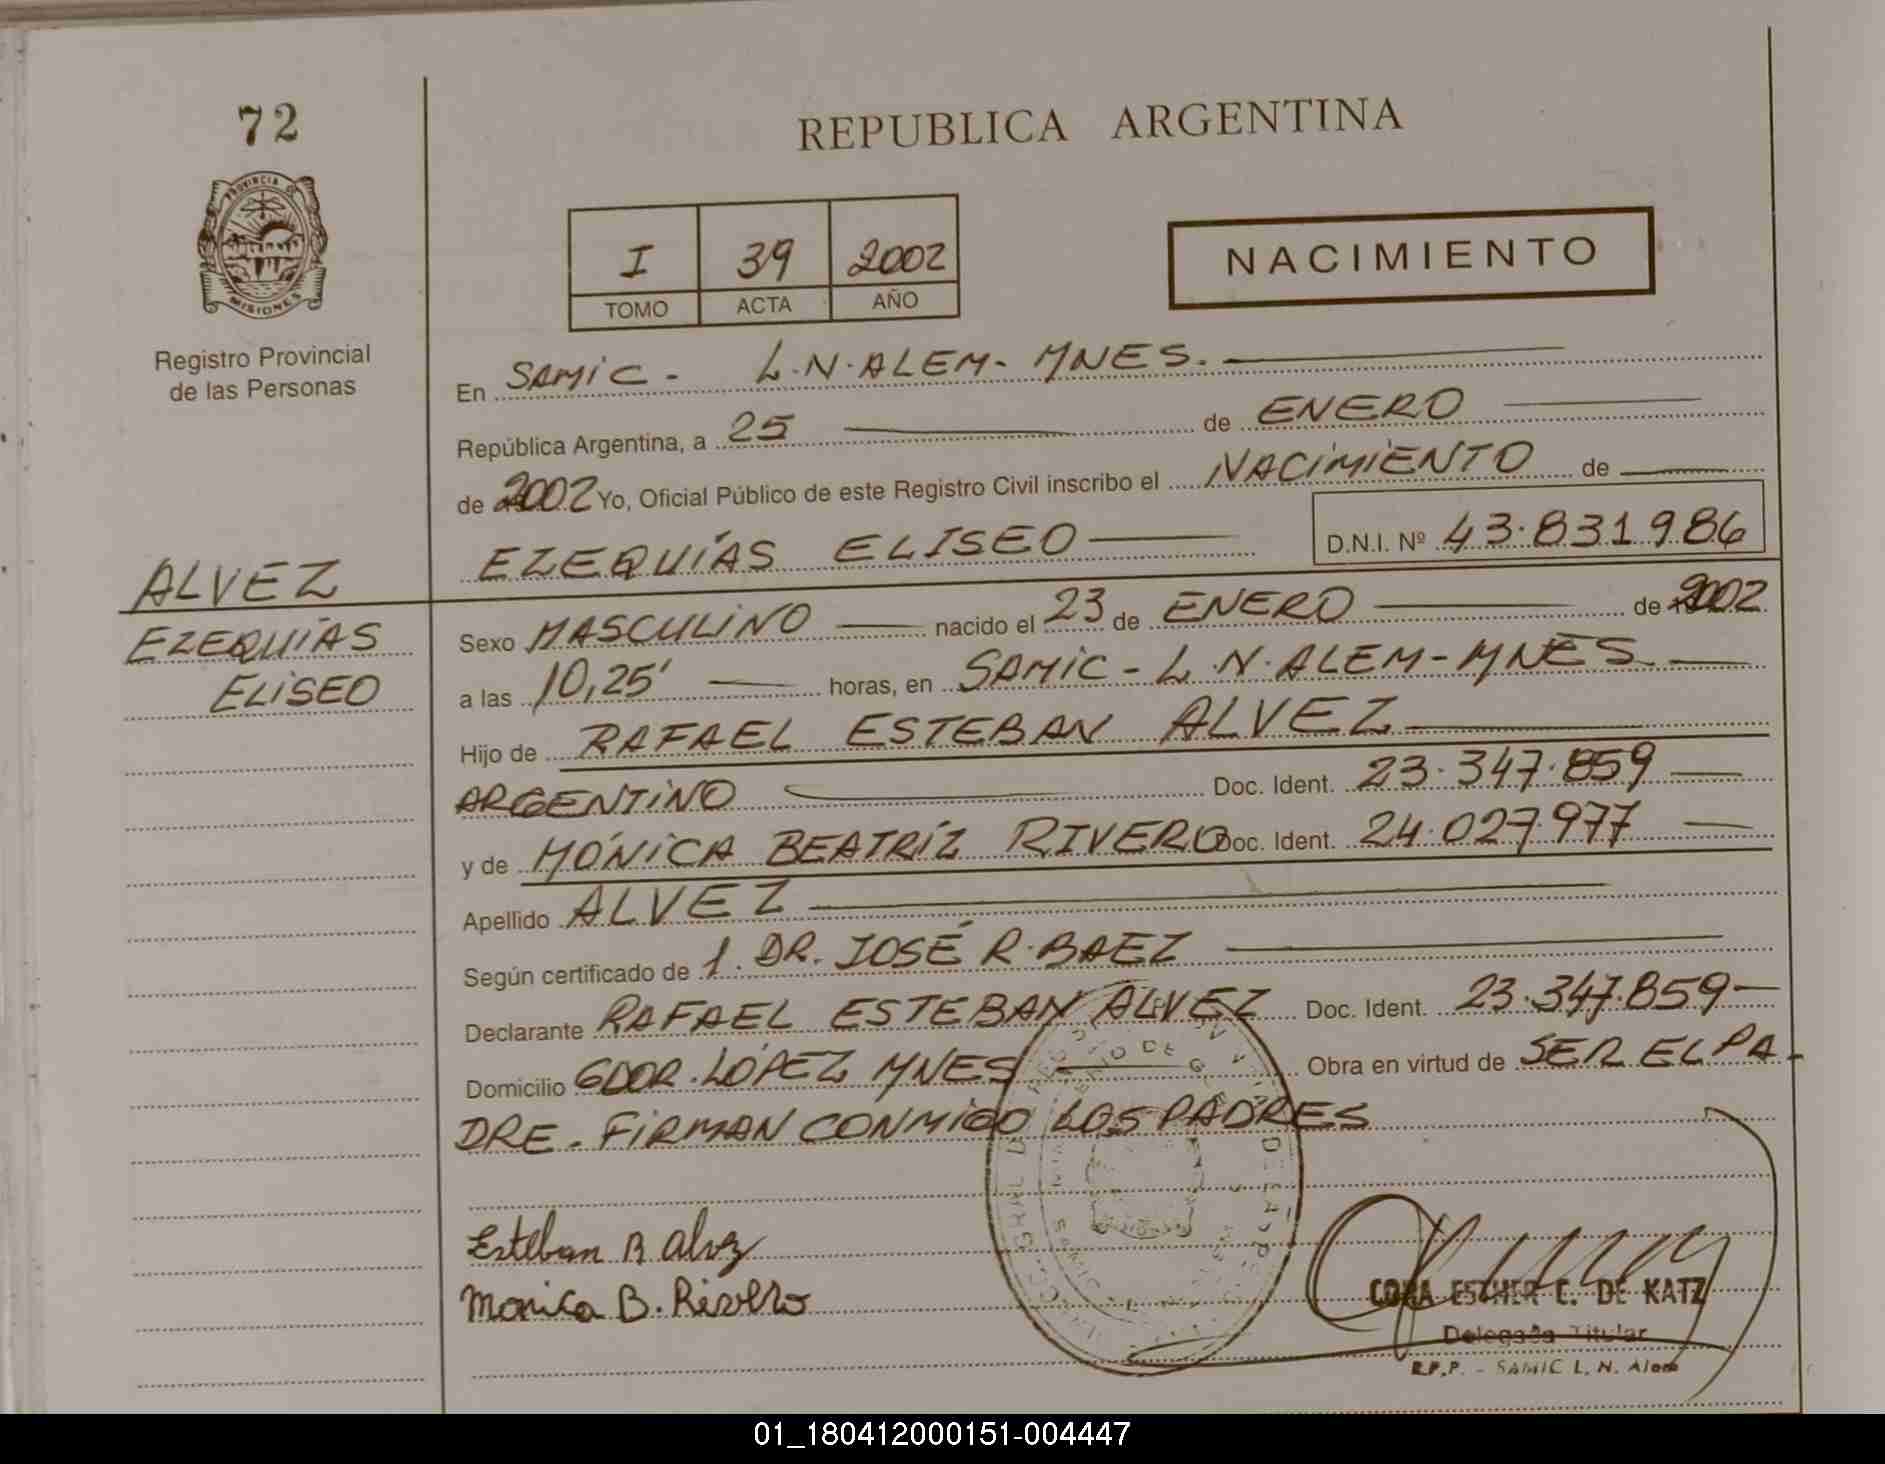 72
PROVINCIA DE
MISIONES
Registro Provincial
de las Personas
ALVEZ
EZEQUÍAS
ELISEO
REPUBLICA ARGENTINA
I 39 2002
TOMO ACTA AÑO
NACIMIENTO
En SAMIC - L.N.ALEM - MNES.
República Argentina, a 25 de ENERO
de 2002 Yo, Oficial Público de este Registro Civil inscribo el NACIMIENTO de
EZEQUÍAS ELISEO D.N.I. Nº 43.831986
Sexo MASCULINO nacido el 23 de ENERO de 2002
a las 10,25' horas, en SAMIC - L.N.ALEM - MNES.
Hijo de RAFAEL ESTEBAN ALVEZ
ARGENTINO Doc. Ident. 23.347.859
y de MÓNICA BEATRÍZ RIVERO Doc. Ident. 24.027.977
Apellido ALVEZ
Según certificado de 1. DR. JOSÉ R. BAEZ
Declarante RAFAEL ESTEBAN ALVEZ Doc. Ident. 23.347.859
Domicilio GDOR. LÓPEZ MNES Obra en virtud de SER EL PA
DRE. FIRMAN CONMIGO LOS PADRES
Esteban R Alvez
Monica B. Rivero
CORA ESTHER C. DE KATZ
Delegada Titular
R.P.P. - SAMIC L. N. Alem
01_180412000151-004447